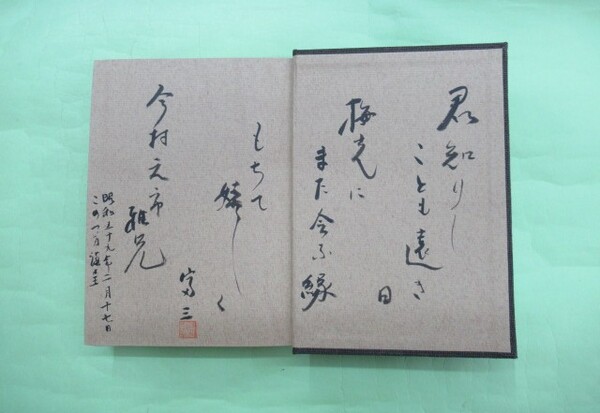 君知りし
ことも遠き
日
梅光に
また会ふ縁
もちて
嬉しく
富三
今村元市
雅兄
昭和五十九年二月十七日
この一日 謹呈